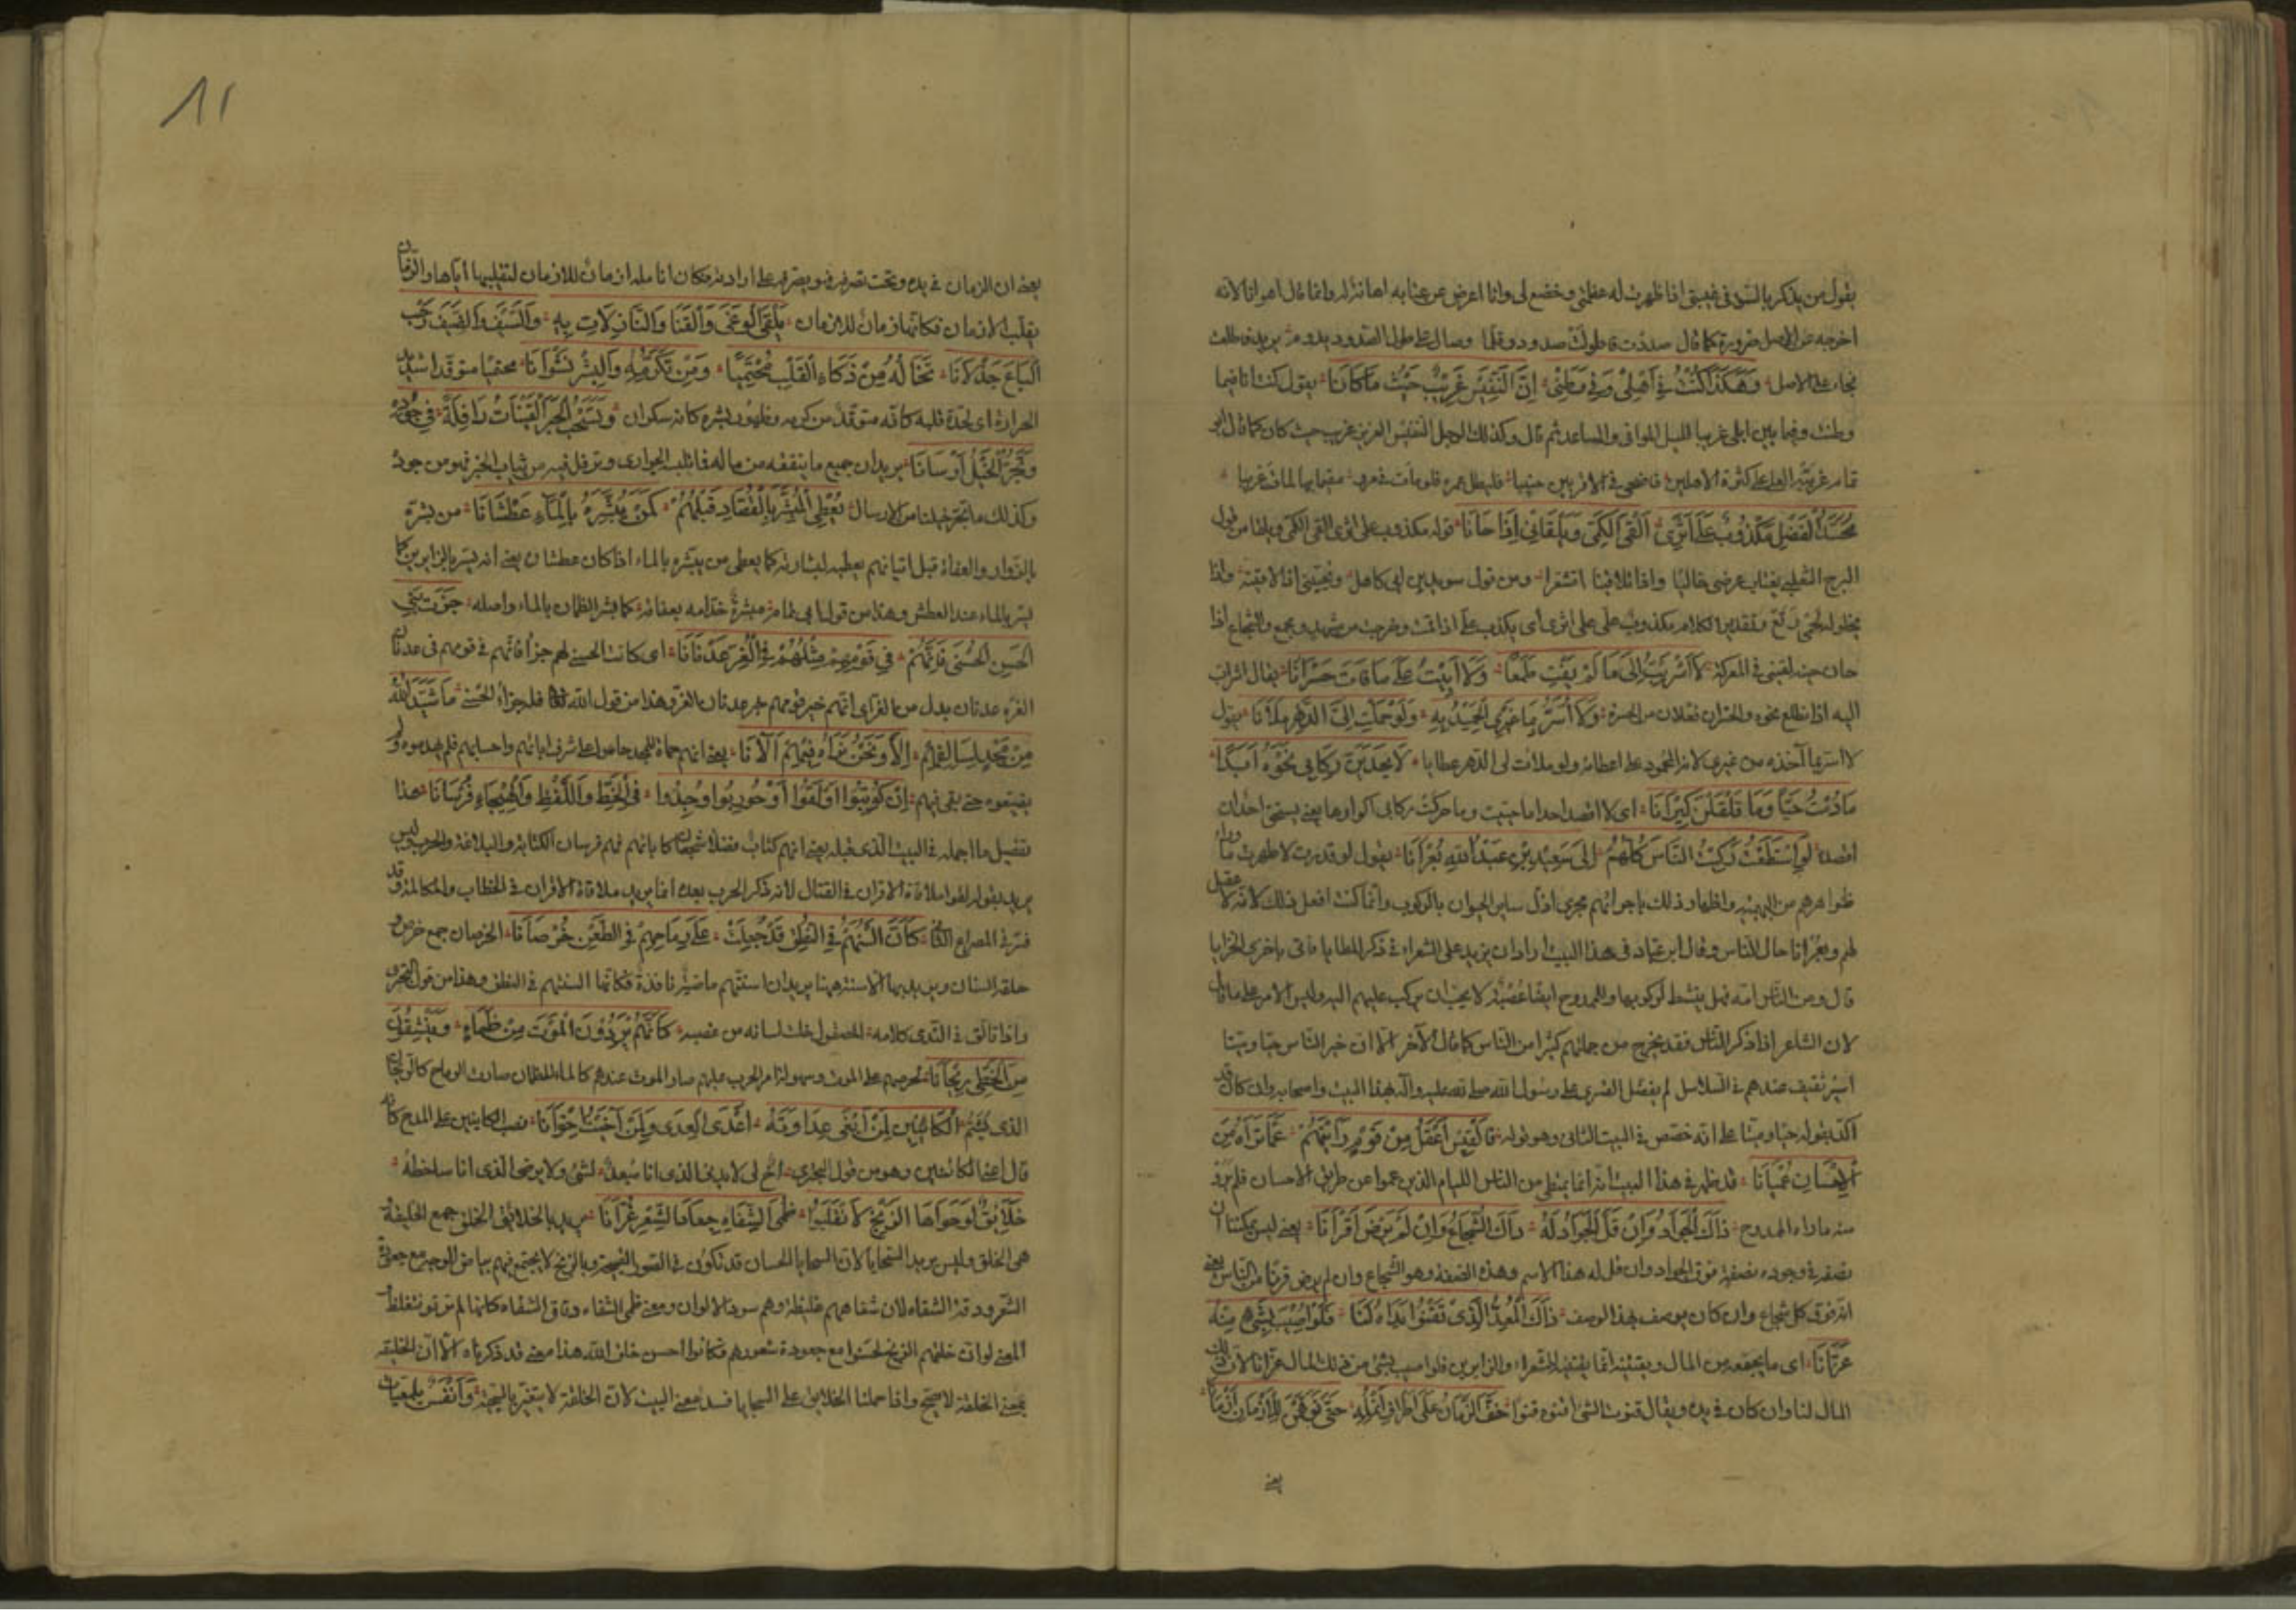 يقول من يذكرني بالسوء في غيبتي اذا ظهرت له عظمني وخضع لي وانا اعرض عن عتابه اهانة له وانما قال اهوانا لانه
اخرجه على الاصل ضرورة كما قال صددت فاطولت صدود وقلما وصال على طول الصدود يدوم يريد فاطلت
فجاء على الاصل وَهٰكَذَا كُنْتُ فِي اَهْلِي وَفِي وَطَنِي اِنَّ النَّفِيسَ غَرِيبٌ حَيْثُ مَا كَانَا يقول كنت ايضا فيما
وطنت وفيما بين اهلي غريبا قليل الموافق والمساعد ثم قال وكذلك الرجل النفيس العزيز غريب حيث كان كما قال ابو
تمام غربته العلى على كثرة الاهلين فاضحى في الاقربين جنيبا فليطل عمره فلو مات في مرو مقيما بها لمات غريبا
مُحَسَّدُ الْفَضْلِ مَكْذُوبٌ عَلَى اَثَرِي اَلْقَى الْكَمِيَّ وَيَلْقَانِي اِذَا حَانَا قوله مكذوب على اثري القى الكمي ويلقاني من قول
البرج التغلبي يغتاب عرضي خاليا واذا تلاقينا اقشعرا ومن قول سويد بن ابي كاهل ويحييني اذا لاقيته واذا
يخلو له لحمي رتع وتقدير الكلام مكذوب علي على اثري اي يكذب علي اذا قمت وخرجت من مشهد ومجمع والشجاع اذا
حان حينه لقيني في المعركة لَا اَشْرَئِبُّ اِلَى مَا لَمْ يَفُتْ طَمَعًا وَلَا اَبِيتُ عَلَى مَا فَاتَ حَسْرَانَا يقال اشرأب
اليه اذا تطلع نحوه والحسران فعلان من الحسرة وَلَا اُسَرُّ بِمَا غَيْرِي الْحَمِيدُ بِهِ وَلَوْ حَمَلْتَ اِلَيَّ الدَّهْرَ مَلْآنَا يقول
لا اسر بما آخذه من غيري لانه المحمود على اعطائه ولو ملأت لي الدهر عطايا لَا يَجْذِبَنَّ رِكَابِي نَحْوَهُ اَحَدٌ
مَا دُمْتُ حَيًّا وَمَا قَلْقَلْنَ كِيرَانَا اي لا اقصد احدا ما حييت وما حركت ركابي اكوارها يعني يستحق احد ان
اقصده لَوِ اسْتَطَعْتُ رَكِبْتُ النَّاسَ كُلَّهُمُ اِلَى سَعِيدِ بْنِ عَبْدِ اللهِ بُعْرَانَا يقول لو قدرت لاظهرت ما وراء
ظواهرهم من البهيمية واظهار ذلك باجرائهم مجرى اذل ساير الحيوان بالركوب وانما كنت افعل ذلك لانه لا عقل
لهم وبعرانا حال للناس وقال ابن عباد في هذا البيت اراد ان يزيد على الشعراء في ذكر المطايا فاتى باخزى الخزايا
قال ومن الناس امه فهل ينشط لركوبها وللممدوح ايضا عصبة لا يحب ان يركب عليهم اليه وليس الامر على ما قال
لان الشاعر اذا ذكر الناس فقد يخرج من جملتهم كثيرا من الناس كما قال الآخر الا ان خير الناس حيا وميتا
اسير ثقيف عندهم في السلاسل لم يفضل القسري على رسول الله صلى الله عليه وآله بهذا البيت واصحابه وان كان قد
اكد بقوله حيا وميتا على انه خصص في البيت الثاني وهو قوله فَالْعِيسُ اَعْقَلُ مِنْ قَوْمٍ رَاَيْتَهُمُ عَمَّا يَرَاهُ مِنَ
الْاِحْسَانِ عُمْيَانَا قد ظهر في هذا البيت انه انما يمتطي من الناس اللئام الذين عموا عن طريق الاحسان فلم يروا
منه ما راه الممدوح ذَاكَ الْجَوَادُ وَاِنْ قَلَّ الْجَوَادُ لَهُ ذَاكَ الشُّجَاعُ وَاِنْ لَمْ يَرْضَ اَقْرَانَا يعني ليس يمكننا ان
نصفه في وجوده بصفة فوق الجواد وان قل له هذا الاسم وهذه الصفة وهو الشجاع وان لم يرض قرنا من الناس يعني
انه فوق كل شجاع وان كان يوصف بهذا الوصف ذَاكَ الْمُعِدُّ الَّذِي تَقْنُو يَدَاهُ لَنَا فَلَوْ اُصِيبَ بِشَيْءٍ مِنْهُ
عَزَّانَا اي ما يجمعه من المال ويقتنيه انما يقتنيه للشعراء والزايرين فلو اصيب بشئ من ذلك المال عزانا لان ذلك
المال لنا وان كان في يده ويقال قنوت الشئ اقنوه قنوا خَفَّ الزَّمَانُ عَلَى اَطْرَافِ اَنْمُلِهِ حَتَّى تُوُهِّمْنَ لِلْاَزْمَانِ اَزْمَانَا
يعني
11
يعني ان الزمان في يده وتحت تصرفه فهو يصرفه على ارادته فكان انامله ازمان للازمان لتقليبها اياها والزمان
يقلب الازمان فكانها ازمان للازمان يَلْقَى الْوَغَى وَالْقَنَا وَالنَّازِلَاتِ بِهِ وَالسَّيْفَ وَالضَّيْفَ رَحْبَ
الْبَاعِ جَذْلَانَا تَخَالُهُ مِنْ ذَكَاءِ الْقَلْبِ مُحْتَمِيًا وَمِنْ تَكَرُّمِهِ وَالْبِشْرِ نَشْوَانَا محتميا متوقدا شديد
الحرارة اي لحدة قلبه كانه متوقد من كرمه وظهور بشره كانه سكران وَتَسْحَبُ الْحِبَرَ الْقَيْنَاتُ رَافِلَةً فِي جُودِهِ
وَتَجُرُّ الْخَيْلُ اَرْسَانَا يريد ان جميع ما ينفقه من ماله فما تلبسه الجواري وترفل فيه من ثياب الحبر فهو من جوده
وكذلك ما تجره خيلنا من الارسان يُعْطِي الْمُبَشِّرَ بِالْقُصَّادِ قَبْلَهُمُ كَمَنْ يُبَشِّرُهُ بِالْمَاءِ عَطْشَانَا من بشره
بالزوار والعفاة قبل اتيانهم يعطيه لبشارته كما يعطي من يبشره بالماء اذا كان عطشان يعني انه يسر بالزايرين كما
يسر بالماء عند العطش وهذا من قول ابي تمام مبشرة خدامه بعفاته كما بشر الظمآن بالماء واصله جَزَتْ بَنِي
الْحَسَنِ الْحُسْنَى فَاِنَّهُمُ فِي قَوْمِهِمْ مِثْلُهُمْ فِي الْغُرِّ عَدْنَانَا اي كانت الحسنى لهم جزاء فانهم في قومهم في عدنان
الغر عدنان بدل من الغر اي انهم خير قومهم خير عدنان الغر وهذا من قول الله فله جزاء الحسنى مَا شَيَّدَ اللهُ
مِنْ مَجْدٍ لِسَالِفِهِمْ اِلَّا وَنَحْنُ نَرَاهُ فِيهِمُ الْآنَا يعني انهم حماة للمجد حاصل على شرف ابائهم واحسابهم فلم يهدموه ولم
يضيعوه حتى بقي فيهم اِنْ كُوتِبُوا اَوْ لُقُوا اَوْ حُورِبُوا وُجِدُوا فِي الْخَطِّ وَاللَّفْظِ وَالْهَيْجَاءِ فُرْسَانَا هذا
تفصيل ما اجمله في البيت الذي قبله يعني انهم كتاب فضلاء شجعان كابائهم فهم فرسان الكتابة والبلاغة والحرب وليس
يريد بقوله لقوا ملاقاة الاقران في القتال لانه ذكر الحرب بعده انما يريد ملاقاة الاقران في الخطاب والمكالمة وقد
فسر في المصراع الثاني كَاَنَّ اَلْسُنَهُمْ فِي النُّطْقِ قَدْ جُعِلَتْ عَلَى رِمَاحِهِمُ فِي الطَّعْنِ خُرْصَانَا الخرصان جمع خرص وهو
حلقة السنان ويريد بها الاسنة ههنا يريد ان اسنتهم ماضية نافذة فكانما السنتهم في النطق وهذا من قول البحتري
واذا تالق في الندي كلامه المصقول خلت لسانه من عضبه كَاَنَّهُمْ يَرِدُونَ الْمَوْتَ مِنْ ظَمَاءٍ وَيَنْشَقُونَ
مِنَ الْخَطِّيِّ رَيْحَانَا لحرصهم على الموت وسهولة امر الحرب عليهم صار الموت عندهم كالماء للظمآن صارت الرماح كالريحان
الذي يشم الْكَائِنِينَ لِمَنْ اَبْغِي عَدَاوَتَهُ اَعْدَى الْعِدَى وَلِمَنْ آخَيْتُ اِخْوَانَا نصب الكاينين على المدح كانه
قال اعني الكائنين وهو من قول البحتري اخ لي لا يدني الذي انا مبعد لشئ ولا يرضى الذي انا ساخطه
خَلَائِقٌ لَوْ حَوَاهَا الزَّنْجُ لَانْقَلَبُوا ظُمْيَ الشِّفَاهِ جِعَادَ الشَّعْرِ غُرَّانَا يريد بالخلائق الخلق جمع الخليقة
هي الخلق وليس يريد السجايا لان السجايا الحسان قد تكون في الصور القبيحة وبالزنج لا يجتمع فيهم بياض الوجه مع جعودة
الشعر ودقة الشفاه لان شفاههم غليظة وهم سود الالوان ومعنى ظمي الشفاه دقاق الشفاه كانها لم ترو فتغلظ
المعنى لو ان خلقهم الزنج لحسنوا مع جعودة شعورهم فكانوا احسن خلق الله هذا معنى قد ذكرناه الا ان الخليقة
بمعنى الخلقة لا يصح واذا حملنا الخلائق على السجايا فسد معنى البيت لان الخلقة لا يتغير بالسجية وَاَنْفُسٌ يَلْمَعِيَّاتٌ